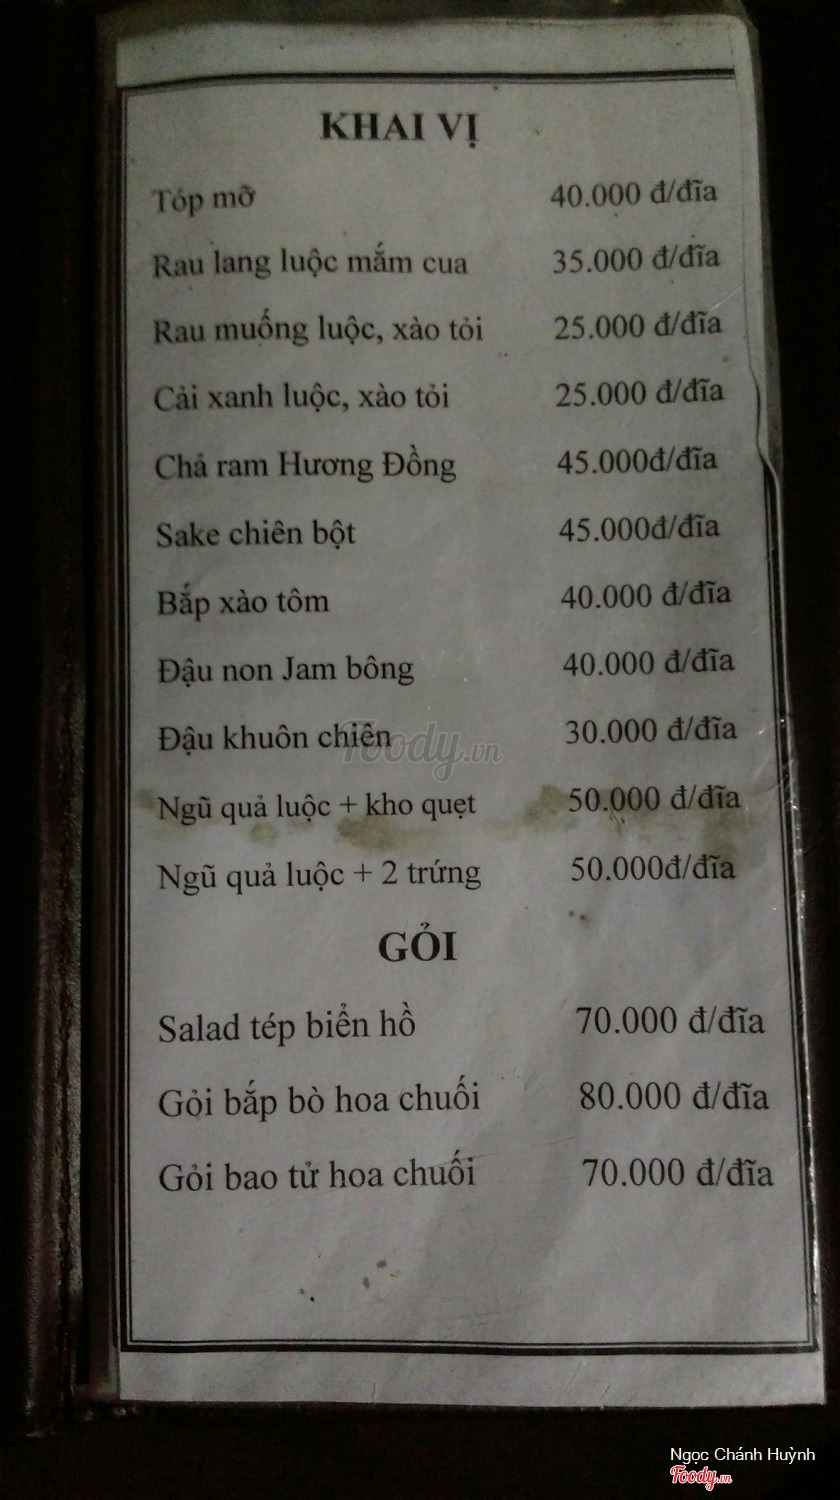 KHAI VỊ
Tóp mỡ 40.000 đ/đĩa
Rau lang luộc mắm cua 35.000 đ/đĩa
Rau muống luộc, xào tỏi 25.000 đ/đĩa
Cải xanh luộc, xào tỏi 25.000 đ/đĩa
Chả ram Hương Đồng 45.000đ/đĩa
Sake chiên bột 45.000đ/đĩa
Bắp xào tôm 40.000 đ/đĩa
Đậu non Jam bông 40.000 đ/đĩa
Đậu khuôn chiên 30.000 đ/đĩa
Foody.vn
Ngũ quả luộc + kho quẹt 50.000 đ/đĩa
Ngũ quả luộc + 2 trứng 50.000đ/đĩa
GỎI
Salad tép biển hồ 70.000 đ/đĩa
Gỏi bắp bò hoa chuối 80.000 đ/đĩa
Gỏi bao tử hoa chuối 70.000 đ/đĩa
Ngọc Chánh Huỳnh
Foody.vn